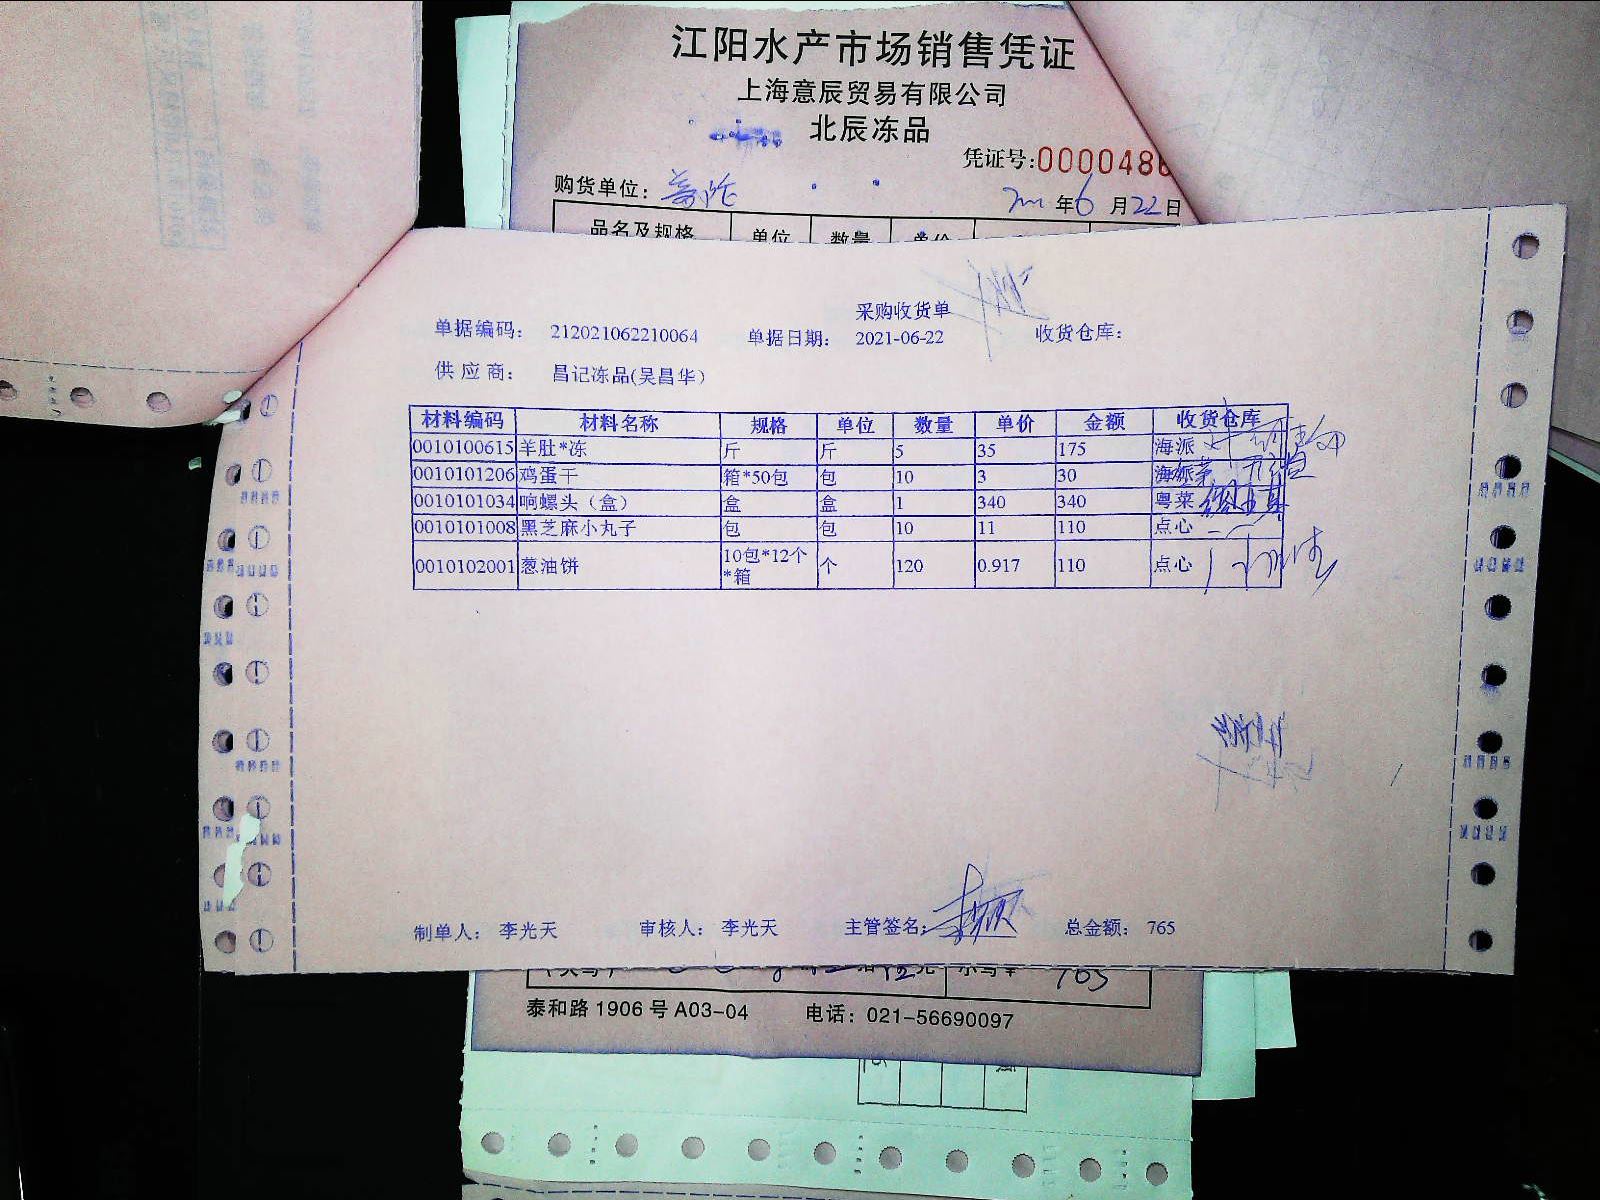 江阳水产市场销售凭证
上海意辰贸易有限公司
北辰冻品
凭证号:0000486
购货单位: 年6月22日
品名及规格 单位 数量 单价
采购收货单
单据编码: 212021062210064 单据日期: 2021-06-22 收货仓库:
供应商: 昌记冻品(吴昌华)
材料编码 材料名称 规格 单位 数量 单价 金额 收货仓库
0010100615 羊肚*冻 斤 斤 5 35 175 海派
0010101206 鸡蛋干 箱*50包 包 10 3 30 海派
0010101034 响螺头（盒） 盒 盒 1 340 340 粤菜
0010101008 黑芝麻小丸子 包 包 10 11 110 点心
0010102001 葱油饼 10包*12个 个 120 0.917 110 点心
*箱
制单人: 李光天 审核人: 李光天 主管签名: 总金额: 765
765
泰和路1906号A03-04 电话: 021-56690097